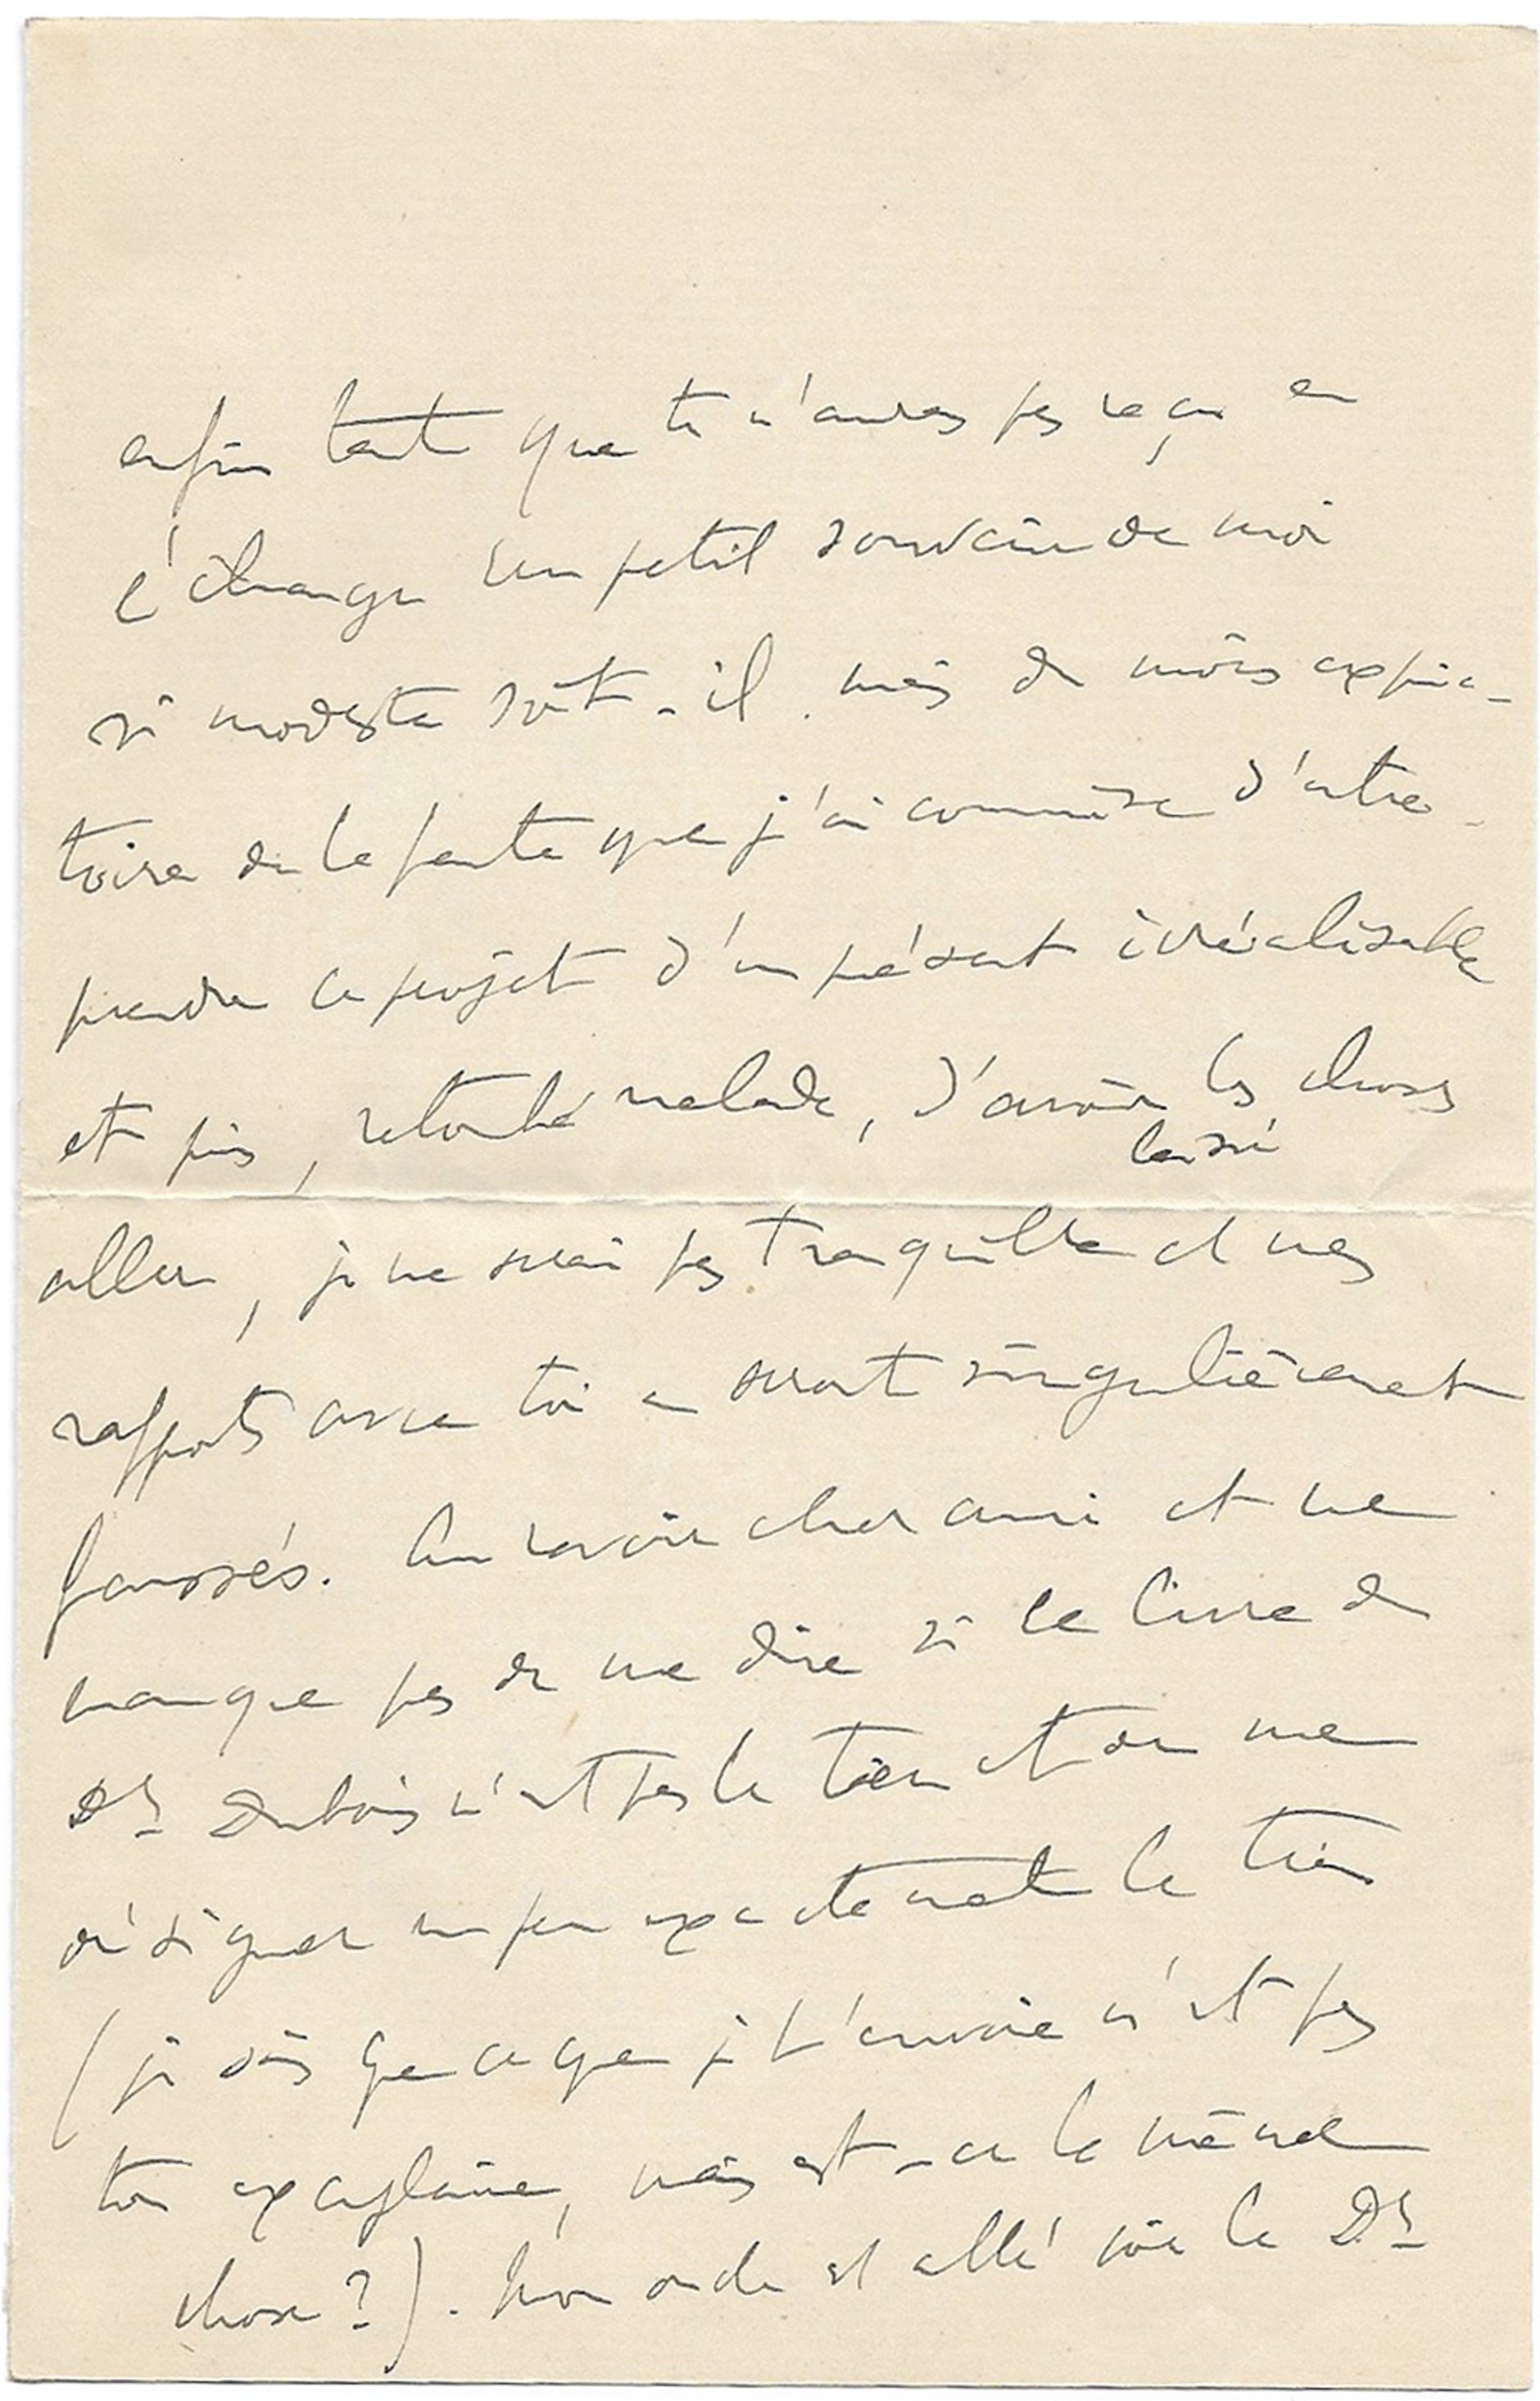 enfin tant que tu n'auras pas reçu en
échange un petit souvenir de moi
si modeste soit-il. mais du moins expia-
toire de la faute que j'ai commise d'entre-
prendre ce projet d'un présent irréalisable
et puis, retombé malade, d'avoir laissé les choses
aller, je ne serai pas tranquille et mes
rapports avec toi en seront singulièrement
faussés. Au revoir cher ami et ne
manque pas de me dire si le livre du
Dr Dubois n'est pas le tien et de me
désigner un peu exactement le tien
(je sais que ce que je t'envoie n'est pas
ton exemplaire, mais est-ce la même
chose?). Mon oncle est allé voir le Dr